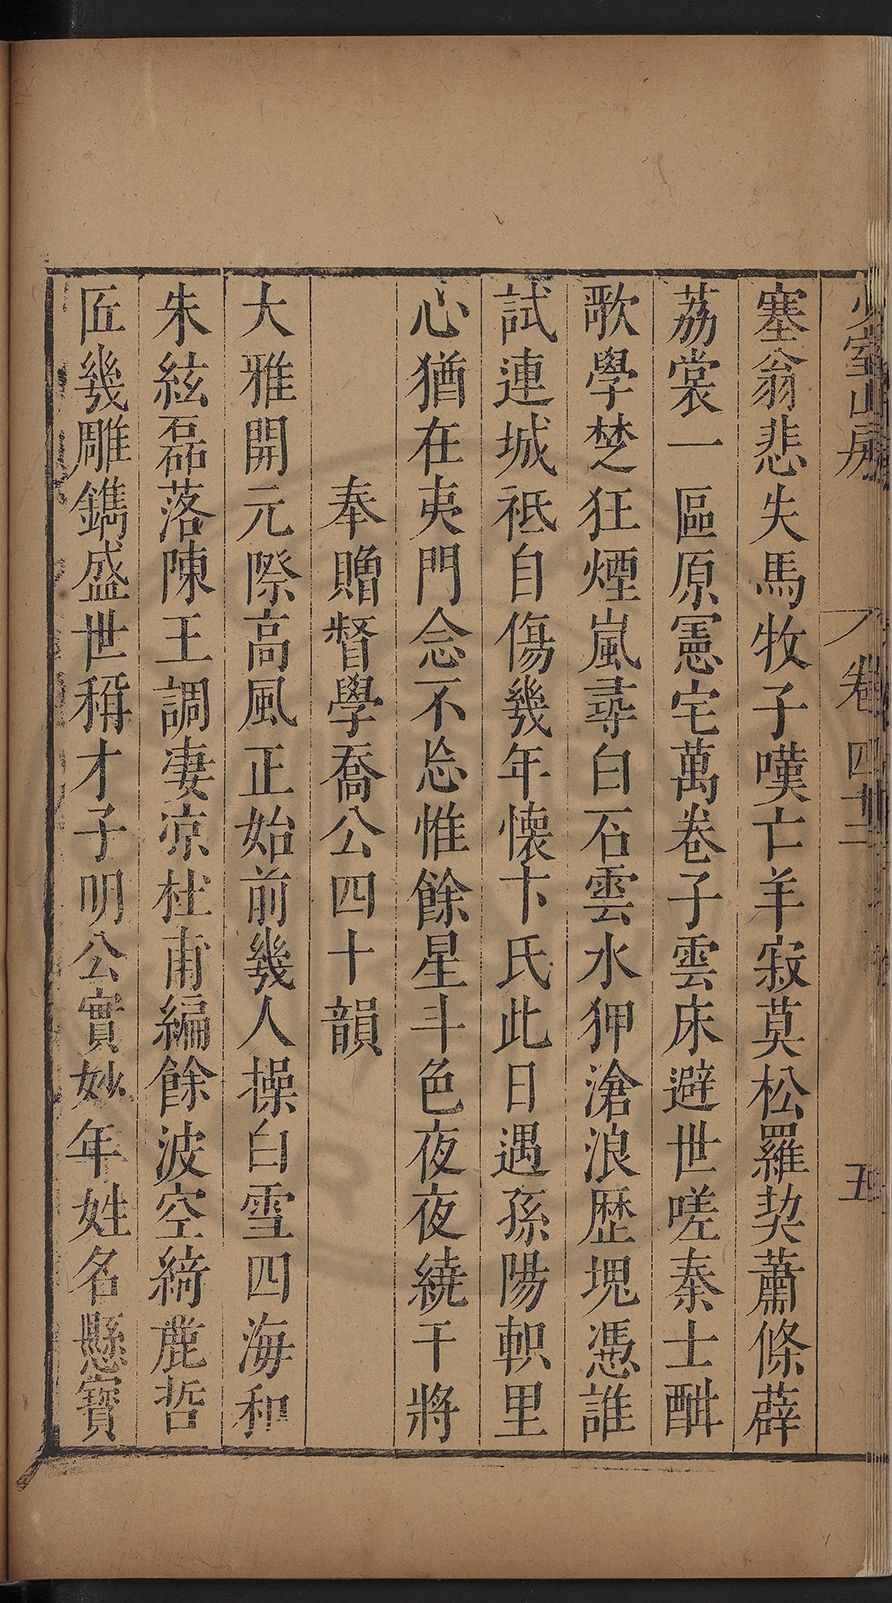 少室山房
卷四十二
五
塞翁悲失馬牧子嘆亡羊寂莫松羅契蕭條薜
荔裳一區原憲宅萬卷子雲床避世嗟秦士酣
歌學楚狂煙嵐尋白石雲水狎滄浪歷塊憑誰
試連城祗自傷幾年懷卞氏此日遇孫陽軹里
心猶在夷門念不忘惟餘星斗色夜夜繞干將
奉贈督學喬公四十韻
大雅開元際高風正始前幾人操白雪四海和
朱絃磊落陳王調凄凉杜甫編餘波空綺麗哲
匠幾雕鐫盛世稱才子明公實妙年姓名懸寶